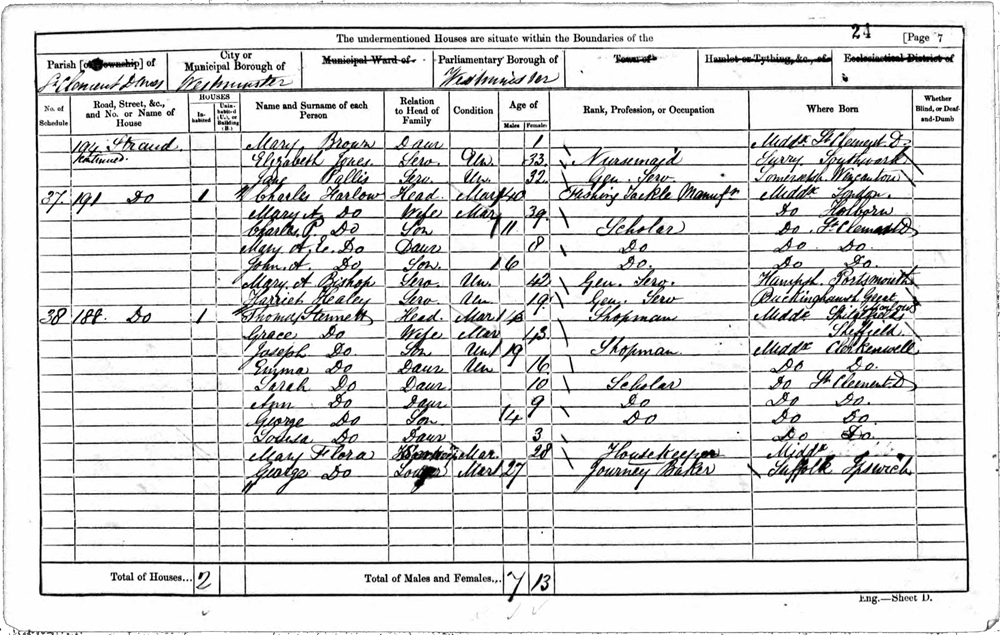 24
The undermentioned Houses are situate within the Boundaries of the [Page 7
Parish [or Township] of City or Municipal Borough of Municipal Ward of Parliamentary Borough of Town of Hamlet or Tything, &c., of Ecclesiastical District of
St Clement Danes Westminster Westminster
No. of Schedule Road, Street, &c., and No. or Name of House HOUSES Inhabited Uninhabited (U.), or Building (B.) Name and Surname of each Person Relation to Head of Family Condition Age of Males Females Rank, Profession, or Occupation Where Born Whether Blind, or Deaf-and-Dumb
194 Strand Mary Brown Daur 1 Middx St Clement D
continued Elizabeth Jones Serv Un 33 Nursemaid Surry Southwark
Jane Serv Un 32 Gen. Serv. Somersetsh Wincanton
37 191 Do 1 Charles Harlow Head Mar 40 Fishing Tackle Manufr Middx London
Mary A. Do Wife Mar 39 Do Holborn
Charles P. Do Son 11 Scholar Do St Clement D
Mary A. E. Do Daur 8 Do Do Do
John A. Do Son 6 Do Do Do
Mary A Bishop Serv. Un. 42 Gen. Serv. Hampsh Portsmouth
Harriet Healey Serv Un. 19 Gen. Serv Buckinghamsh Great
38 188 Do 1 Thomas Stennett Head Mar Shopman Middx
Grace Do Wife Mar 43 Sheffield
Joseph Do Son Un 19 Shopman Middx Clerkenwell
Emma Do Daur Un 16 Do Do
Sarah Do Daur 10 Scholar Do St Clement D
Ann Do Daur 9 Do Do Do
George Do Son 4 Do Do Do
Louisa Do Daur 3 Do Do
Mary Flora Mar. 28 Housekeeper Middx
George Do Mar 27 Journey Baker Suffolk Ipswich
Total of Houses... 2 Total of Males and Females... 7 13
Eng.—Sheet D.